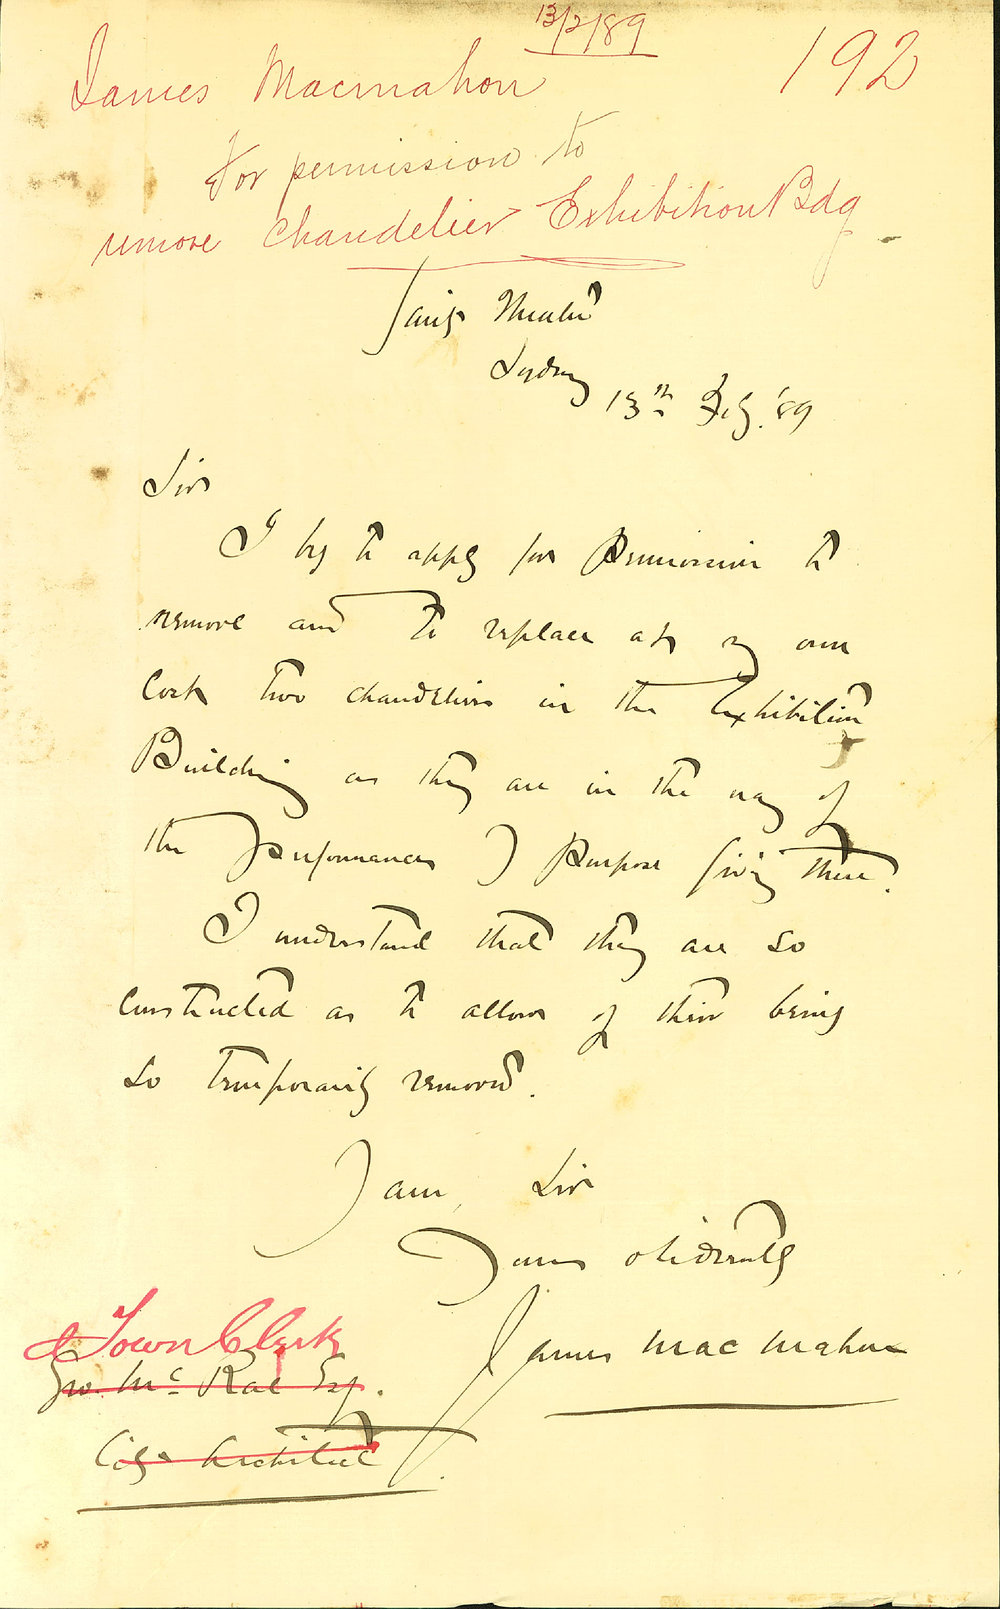 13/2/89
James Macmahon 192
For permission to
remove Chandelier Exhibition Bdg
Theatre
Sydney 13th Feby. '89
Sir
I beg to apply for Permission to
remove and to replace at my own
Cost two chandeliers in the Exhibition
Building as they are in the way of
the Performances I Purpose giving there.
I understand that they are so
Constructed as to allow of their being
so temporarily removed.
I am, Sir
Yours obediently
James Mac Mahon
Town Clerk
Geo. McRae Esq.
City Architect